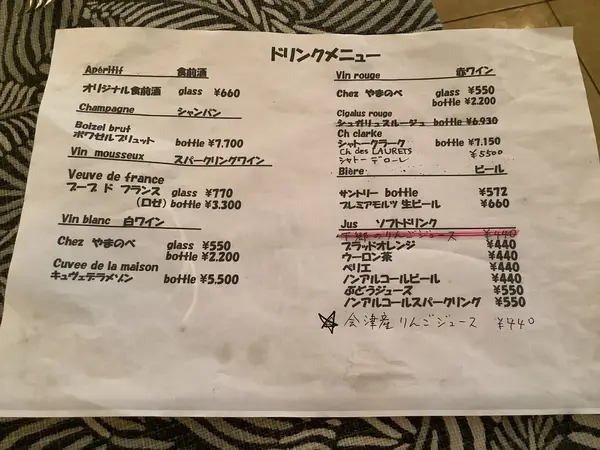 ドリンクメニュー
Apéritif 食前酒
オリジナル食前酒 glass ¥660
Champagne シャンパン
Boizel brut
ボワゼルブリュット bottle ¥7.700
Vin mousseux スパークリングワイン
Veuve de france
ブーブ ド フランス glass ¥770
(ロゼ) bottle ¥3.300
Vin blanc 白ワイン
Chez やまのべ glass ¥550
bottle ¥2.200
Cuvee de la maison
キュヴェデラメゾン bottle ¥5.500
Vin rouge 赤ワイン
Chez やまのべ glass ¥550
bottle ¥2.200
Cigalus rouge
シュガリュスルージュ bottle ¥6.930
Ch clarke
シャトークラーク bottle ¥7.150
Ch des LAURETS
シャトー デローレ ¥5500
Bière ビール
サントリー bottle ¥572
プレミアモルツ 生ビール ¥660
Jus ソフトドリンク
のりんごジュース ¥440
ブラッドオレンジ ¥440
ウーロン茶 ¥440
ペリエ ¥440
ノンアルコールビール ¥440
ぶどうジュース ¥550
ノンアルコールスパークリング ¥550
会津産りんごジュース ¥440